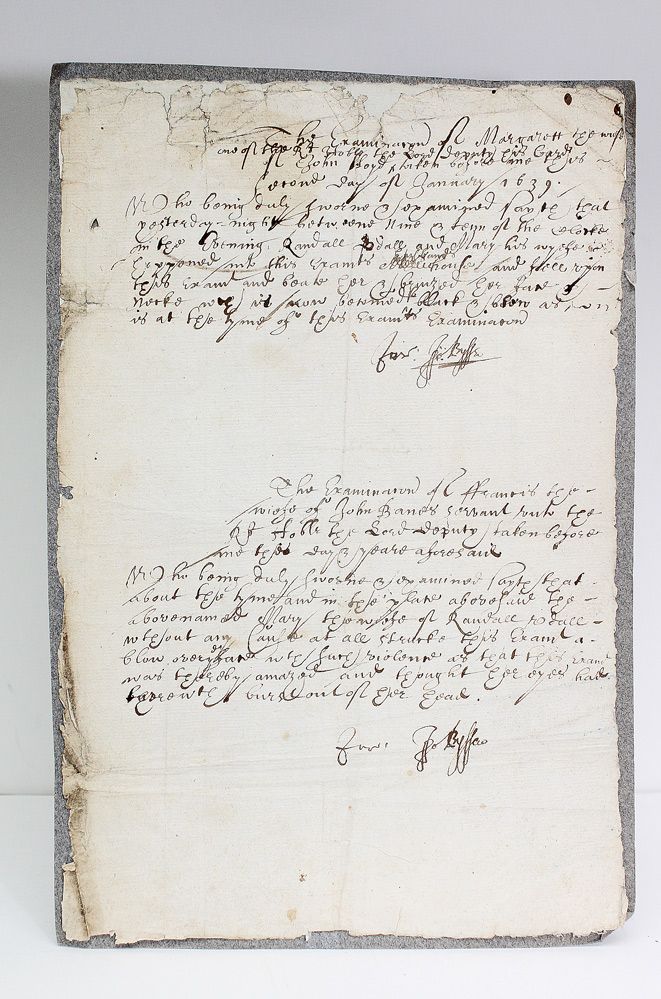 The Examinacon of Margarett the wife
one of the Rt Hoble the Lord Deputy his Gard
of John Boyd taken before me this
second day of January 1639.
Who being duly sworne & examined sayth that
yesterday night betweene nine & tenn of the clocke
in the Evening, Randall Rodall and Mary his wyfe
happened into this Exants house and fell upon
this Exant and beate her & bruized her face &
Necke wch is now become black & blew as
is at the tyme of this Exants Examinacon
Jur.
The Examinacon of Ffrancis the
wiefe of John Banes servant unto the
Rt Hoble the Lord Deputy taken before
me the day & yeare aforesaid
Who being duly sworne & examined sayth that
about the tyme and in the place abovesaid the
abovenamed Mary the wiefe of Randall Rodall
wthout any Cause at all strucke this Exant a
blow over ye face wth such violence as that this Exant
was thereby amazed and thought her eyes had
therewth burst out of her head.
Jur.